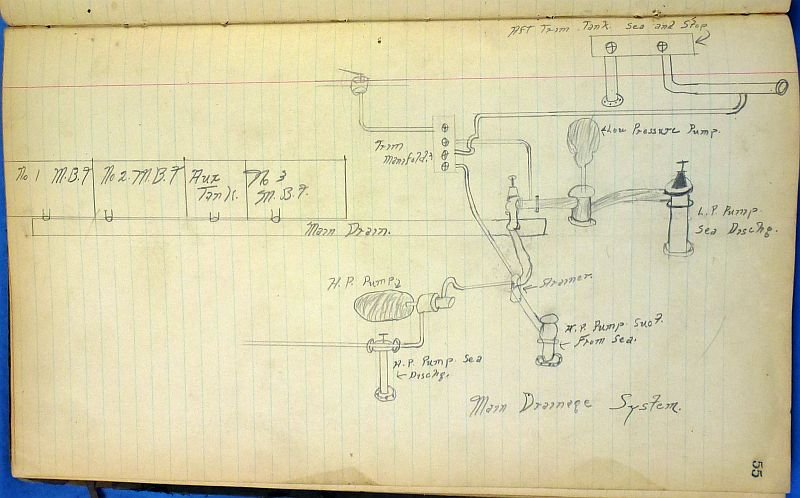 Aft Trim Tank Sea and Stop
Low Pressure Pump.
Trim
Manifold.
No 1 M.B.T
No 2 M.B.T
Aux
Tank.
No 3
M.B.T.
L.P. Pump
Sea Dischg.
Main Drain.
H.P. Pump
Strainer.
H.P. Pump Suct.
From Sea.
H.P. Pump Sea
Dischg.
Main Drainage System.
55